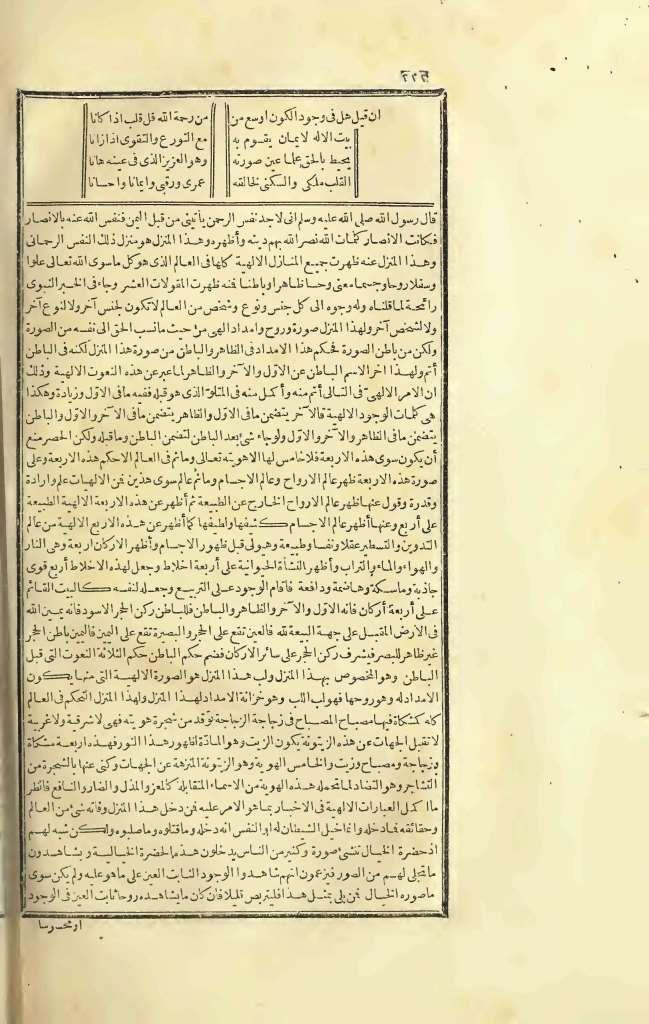 ٣٢٦
ان قيل هل فى وجود الكون اوسع من من رحمة الله قل قلب اذا كانا
بيت الاله لايمان يقوم به مع التورع والتقوى اذا زانا
يحيط بالحق علما عين صورته وهو العزيز الذى فى عينه هانا
القلب ملكى والسكنى لخالقه عمرى ورقبى وايمانا واحسانا
قال رسول الله صلى الله عليه وسلم انى لاجد نفس الرحمن يأتينى من قبل اليمن فنفس الله عنه بالانصار
فكانت الانصار كلمات الله نصر الله بهم دينه وأظهره وهذا المنزل هو منزل ذلك النفس الرحمانى
وهذا المنزل عنه ظهرت جميع المنازل الالهية كلها فى العالم الذى هو كل ما سوى الله تعالى علوا
وسفلا روحا وجسما معنى وحسا ظاهرا وباطنا فمنه ظهرت المقولات العشر وجاء فى الخبر النبوى
رائحة لما قلناه وله وجوه الى كل جنس ونوع وشخص من العالم لا تكون لجنس آخر ولا لنوع آخر
ولا لشخص آخر ولهذا المنزل صورة وروح وامداد الهى من حيث ما نسب الحق الى نفسه من الصورة
ولكن من باطن الصورة فحكم هذا الامداد فى الظاهر والباطن من صورة هذا المنزل لكنه فى الباطن
أتم ولهذا اخر الاسم الباطن عن الاول والآخر والظاهر لما عبر عن هذه النعوت الالهية وذلك
ان الامر الالهى فى التالى أتم منه وأكمل منه فى المتلو الذى هو قبله ففيه ما فى الاول وزيادة وهكذا
هى كلمات الوجود الالهية فالآخر يتضمن ما فى الاول والظاهر يتضمن ما فى الآخر والاول والباطن
يتضمن ما فى الظاهر والآخر والاول ولو جاء شئ بعد الباطن لتضمن الباطن وما قبله ولكن الحصر منع
أن يكون سوى هذه الاربعة فلا خامس لها الا هويته تعالى وما ثم فى العالم الا حكم هذه الاربعة وعلى
صورة هذه الاربعة ظهر عالم الارواح وعالم الاجسام وما ثم عالم سوى هذين فمن الالهيات علم وارادة
وقدرة وقول عنها ظهر عالم الارواح الخارج عن الطبيعة ثم أظهر عن هذه الاربعة الالهية الطبيعة
على أربع وعنها أظهر عالم الاجسام كثيفها ولطيفها كما أظهر عن هذه الاربع الالهية من عالم
التدوين والتسطير عقلا ونفسا وطبيعة وهيولى قبل ظهور الاجسام وأظهر الاركان اربعة وهى النار
والهواء والماء والتراب وأظهر النشأة الحيوانية على أربعة اخلاط وجعل لهذه الاخلاط أربع قوى
جاذبة وماسكة وهاضمة ودافعة فأقام الوجود على التربيع وجعله لنفسه كالبيت القائم
على أربعة أركان فانه الاول والآخر والظاهر والباطن فللباطن ركن الحجر الاسود فانه يمين الله
فى الارض المقبل على جهة البيعة لله فالعين تقع على الحجر والبصيرة تقع على اليمين فاليمين باطن الحجر
غير ظاهر للبصر فيشرف ركن الحجر على سائر الاركان فضم حكم الباطن حكم الثلاثة النعوت التى قبل
الباطن وهو المخصوص بهذا المنزل ولب هذا المنزل هو الصورة الالهية التى منها يكون
الامداد له وهو روحها فهو لب اللب وهو خزانة الامداد لهذا المنزل ولهذا المنزل التحكم فى العالم
كله كمشكاة فيها مصباح المصباح فى زجاجة الزجاجة توقد من شجرة هويته فهى لا شرقية ولا غربية
لا تقبل الجهات عن هذه الزيتونة يكون الزيت وهو المادة لظهور هذا النور فهذه اربعة مشكاة
وزجاجة ومصباح وزيت والخامس الهوية وهو الزيتونة المنزهة عن الجهات وكنى عنها بالشجرة من
التشاجر وهو التضاد لما تحمله هذه الهوية من الاسماء المتقابلة كالمعز والمذل والضار والنافع فانظر
ما اكمل العبارات الالهية فى الاخبار بما هو الامر عليه فمن دخل هذا المنزل وفاته شئ من العالم
وحقائقه فما دخله وانما خيل الشيطان له او النفس انه دخله وما قتلوه وما صلبوه ولكن شبه لهم
اذ حضرة الخيال تنشئ صورة وكثير من الناس يدخلون هذه الحضرة الخيالية ويشاهدون
ما تجلى لهم من الصور فيزعمون انهم شاهدوا الوجود الثابت العين على ما هو عليه ولم يكن سوى
ما صوره الخيال فمن بلى بمثل هذا فليتربص قليلا فان كان ما يشاهده روحا ثابت العين فى الوجود
او محسوسا